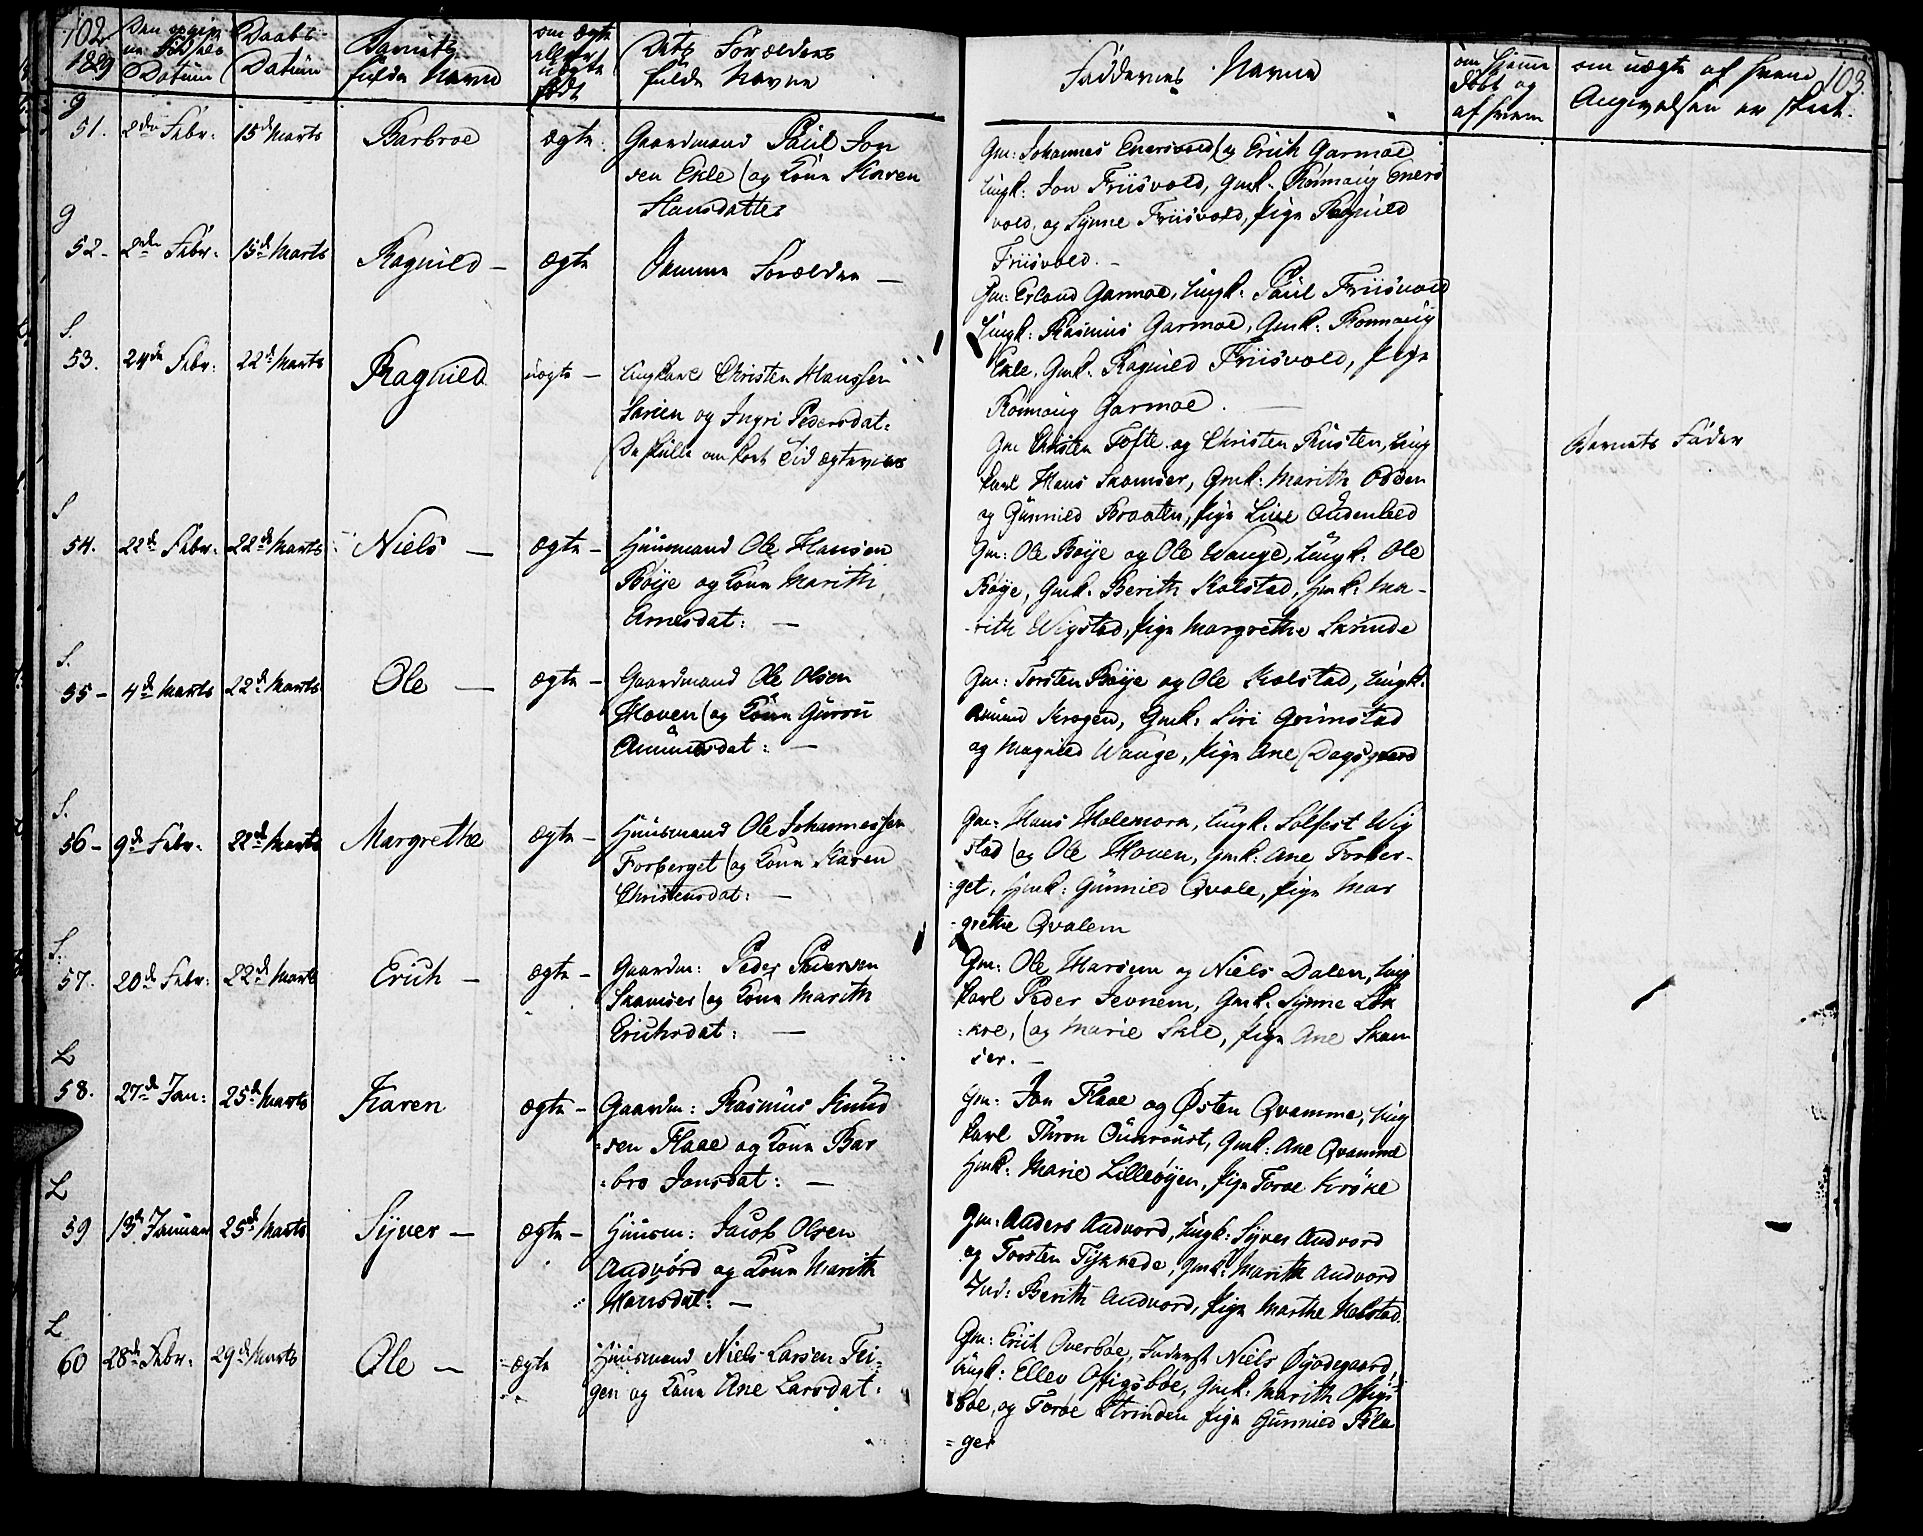 102
1829
Den opgiv
ne Fødsels
Datum
Daabs
Datum
Barnets
fulde Navn
om ægte
eller
uægte
født
Dets Forældres
fulde Navne
Faddernes Navne
om hjemme
døbt og
af hvem
om uægte af hvem
Angivelsen er skeet.
103.
g
51. 2den Febr: 15de Marts Barbroe ægte. Gaardmand Paul Jon
sen Ekle og Kone Karen
Hansdatter
Gm: Johannes Enersvold og Erich Garmoe
Ungk: Jon Friisvold, Gmk: Rønnaug Eners
vold, og Synne Friisvold, Pige Ragnild
Friisvold. -
g
52- 2den Febr. 15de Marts Ragnild - ægte Samme Forældre -
Gm: Erland Garmoe, Ungk: Paul Friisvold
Ungk: Rasmus Garmoe, Gmk: Rønnaug
Ekle, Gmk. Ragnild Friisvold, Pige
Rønnaug Garmoe. -
S.
53. 24de Febr: 22de Marts Ragnild uægte - Ungkarl Christen Hanssen
og Ingri Pedersdat:
De skulle om kort Tid ægtevies
Gm Christen Tofte og Christen Rusten, Ung
karl Hans Skamser, Gmk: Marith Odden
og Gunnild Braaten, Pige Live Oudenlied
Barnets Fader
S
54. 22de Febr. 22de Marts Niels - ægte - Huusmand Ole Hansen
Bøye og Kone Marith
Arnesdat: -
Gm: Ole Bøye og Ole Wauge, Ungk: Ole
Bøye, Gmk. Berith Kolstad, Hmk: Ma-
rith Wigstad, Pige Margrethe Skrinde
S.
55- 4de Marts 22de Marts Ole - ægte - Gaardmand Ole Olsen
Hoven og Kone Guroe
Amundsdat: -
Gm: Torsten Bøye og Ole Kolstad, Ungk:
Amund Krogen, Gmk: Siri Grimstad
og Magnild Wauge, Pige Ane Dagsgaard
S.
56- 9de Febr. 22de Marts Margrethe ægte - Huusmand Ole Johannessen
Forberget og Kone Karen
Christensdat: -
Gm: Hans Holemoen, Ungk: Solfest Wig
stad og Ole Hoven, Gmk: Ane Forber-
get, Hmk: Gunnild Qvale, Pige Mar
grethe Qvalem
S.
57. 20de Febr: 22de Marts Erich - ægte - Gaardm: Peder Pedersen
Skamser og Kone Marith
Erichsdat: -
Gm: Ole Harsem og Niels Dalen, Ung
karl Peder Jevnem, Gmk: Synne Løk
kre, og Marie Skle, Pige Ane Skam
ser. -
L
58. 27de Jan: 25de Marts Karen ægte - Gaardm: Rasmus Knud
sen Flaae og Kone Bar
bro Jonsdat: -
Gm: Jon Flaae og Østen Qvamme, Ung
karl Thron Qvamme, Gmk: Ane Qvamme
Hmk: Marie Lilleøyen, Pige Toroe Krøke
L
59 13de Januar 25de Marts Syver - ægte - Huusm: Jacob Olsen
Andvord og Kone Marith
Hansdat: -
Gm: Anders Andvord, Ungk: Syver Andvord
og Torsten Tykkede, Gmk: Marith Andvord
Ind: Berith Andvord, Pige Marthe Kolstad.
L
60 28de Febr. 29de Marts Ole - ægte Huusmand Niels Larsen Tei-
gen og Kone Ane Larsdat:
Gm: Erich Overbøe, Inderst Niels Øyodegaard,
Ungk: Ellev Offigsbøe, Gmk: Marith Offigs
bøe, og Toroe Strinden Pige Gunnild Kla
ger